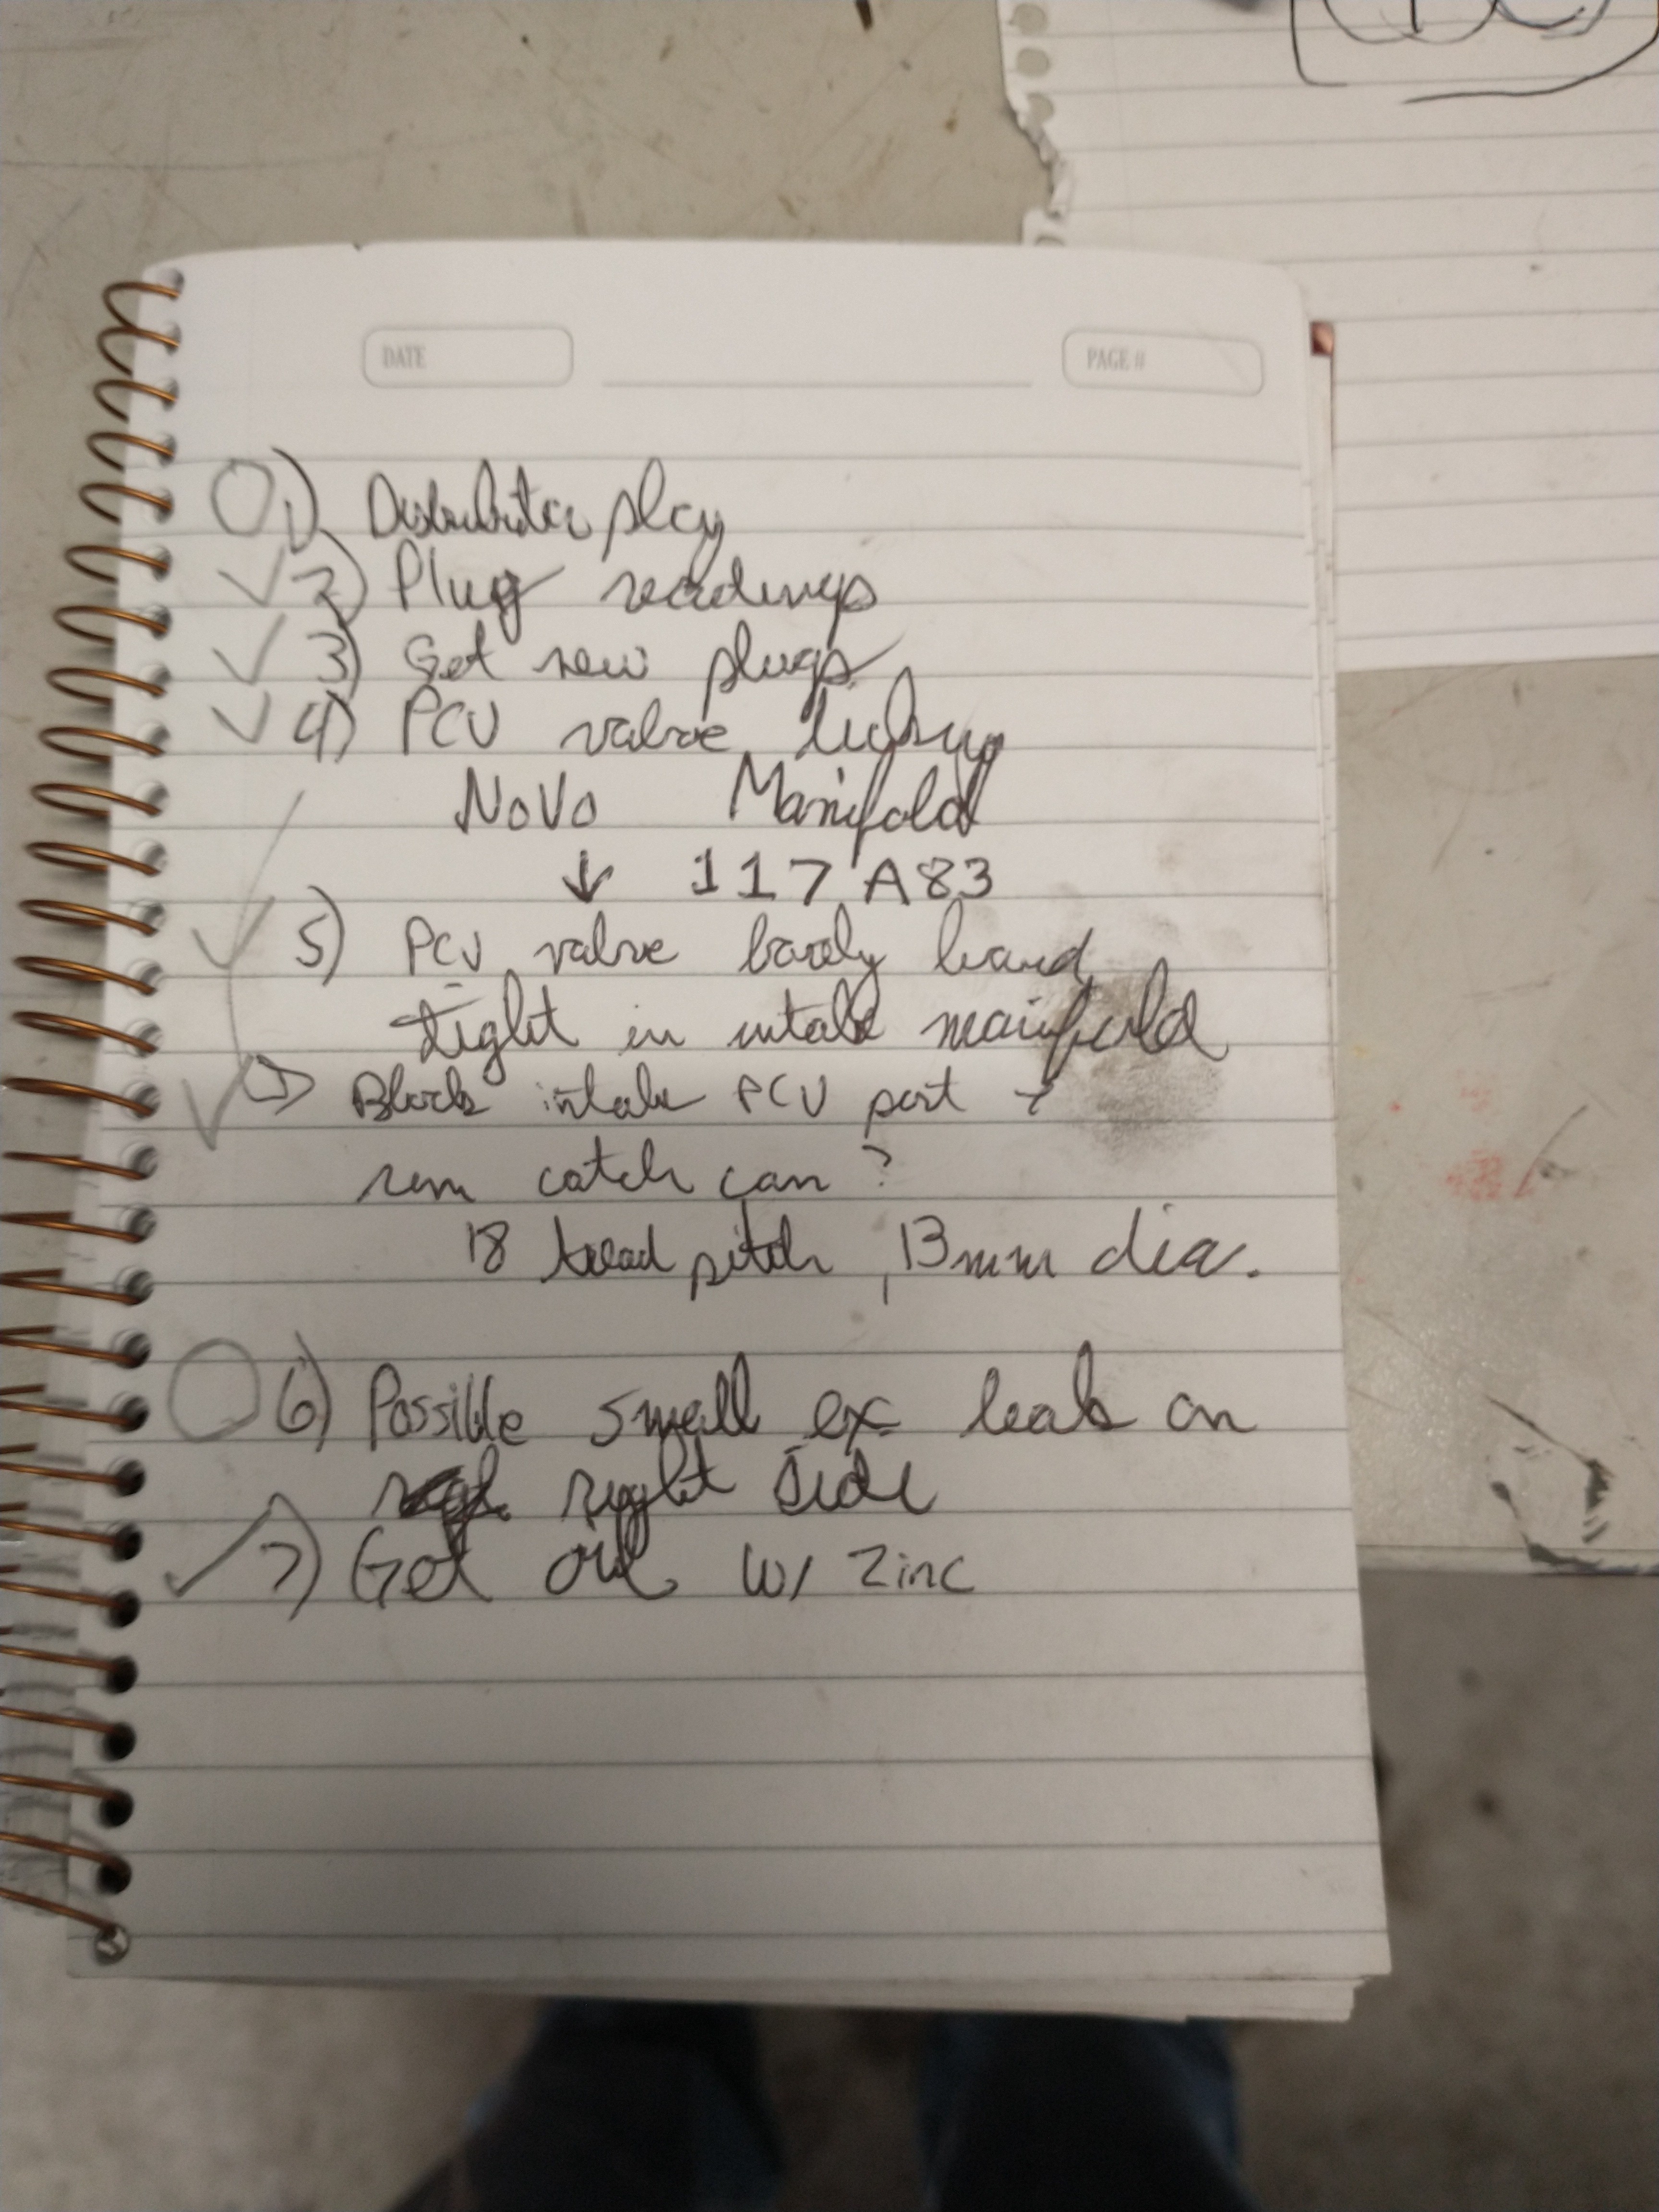 DATE
PAGE #
1) Distributor play
✓ 2) Plug readings
✓ 3) Get new plugs
✓ 4) PCV valve
NOVO Manifold
↓ 117 A83
✓ 5) PCV valve barely hand
tight in intake manifold
✓ Block intake PCV port +
run catch can?
18 tread pitch, 13mm dia.
6) Possible small ex leak on
right side
✓ 7) Get oil w/ Zinc